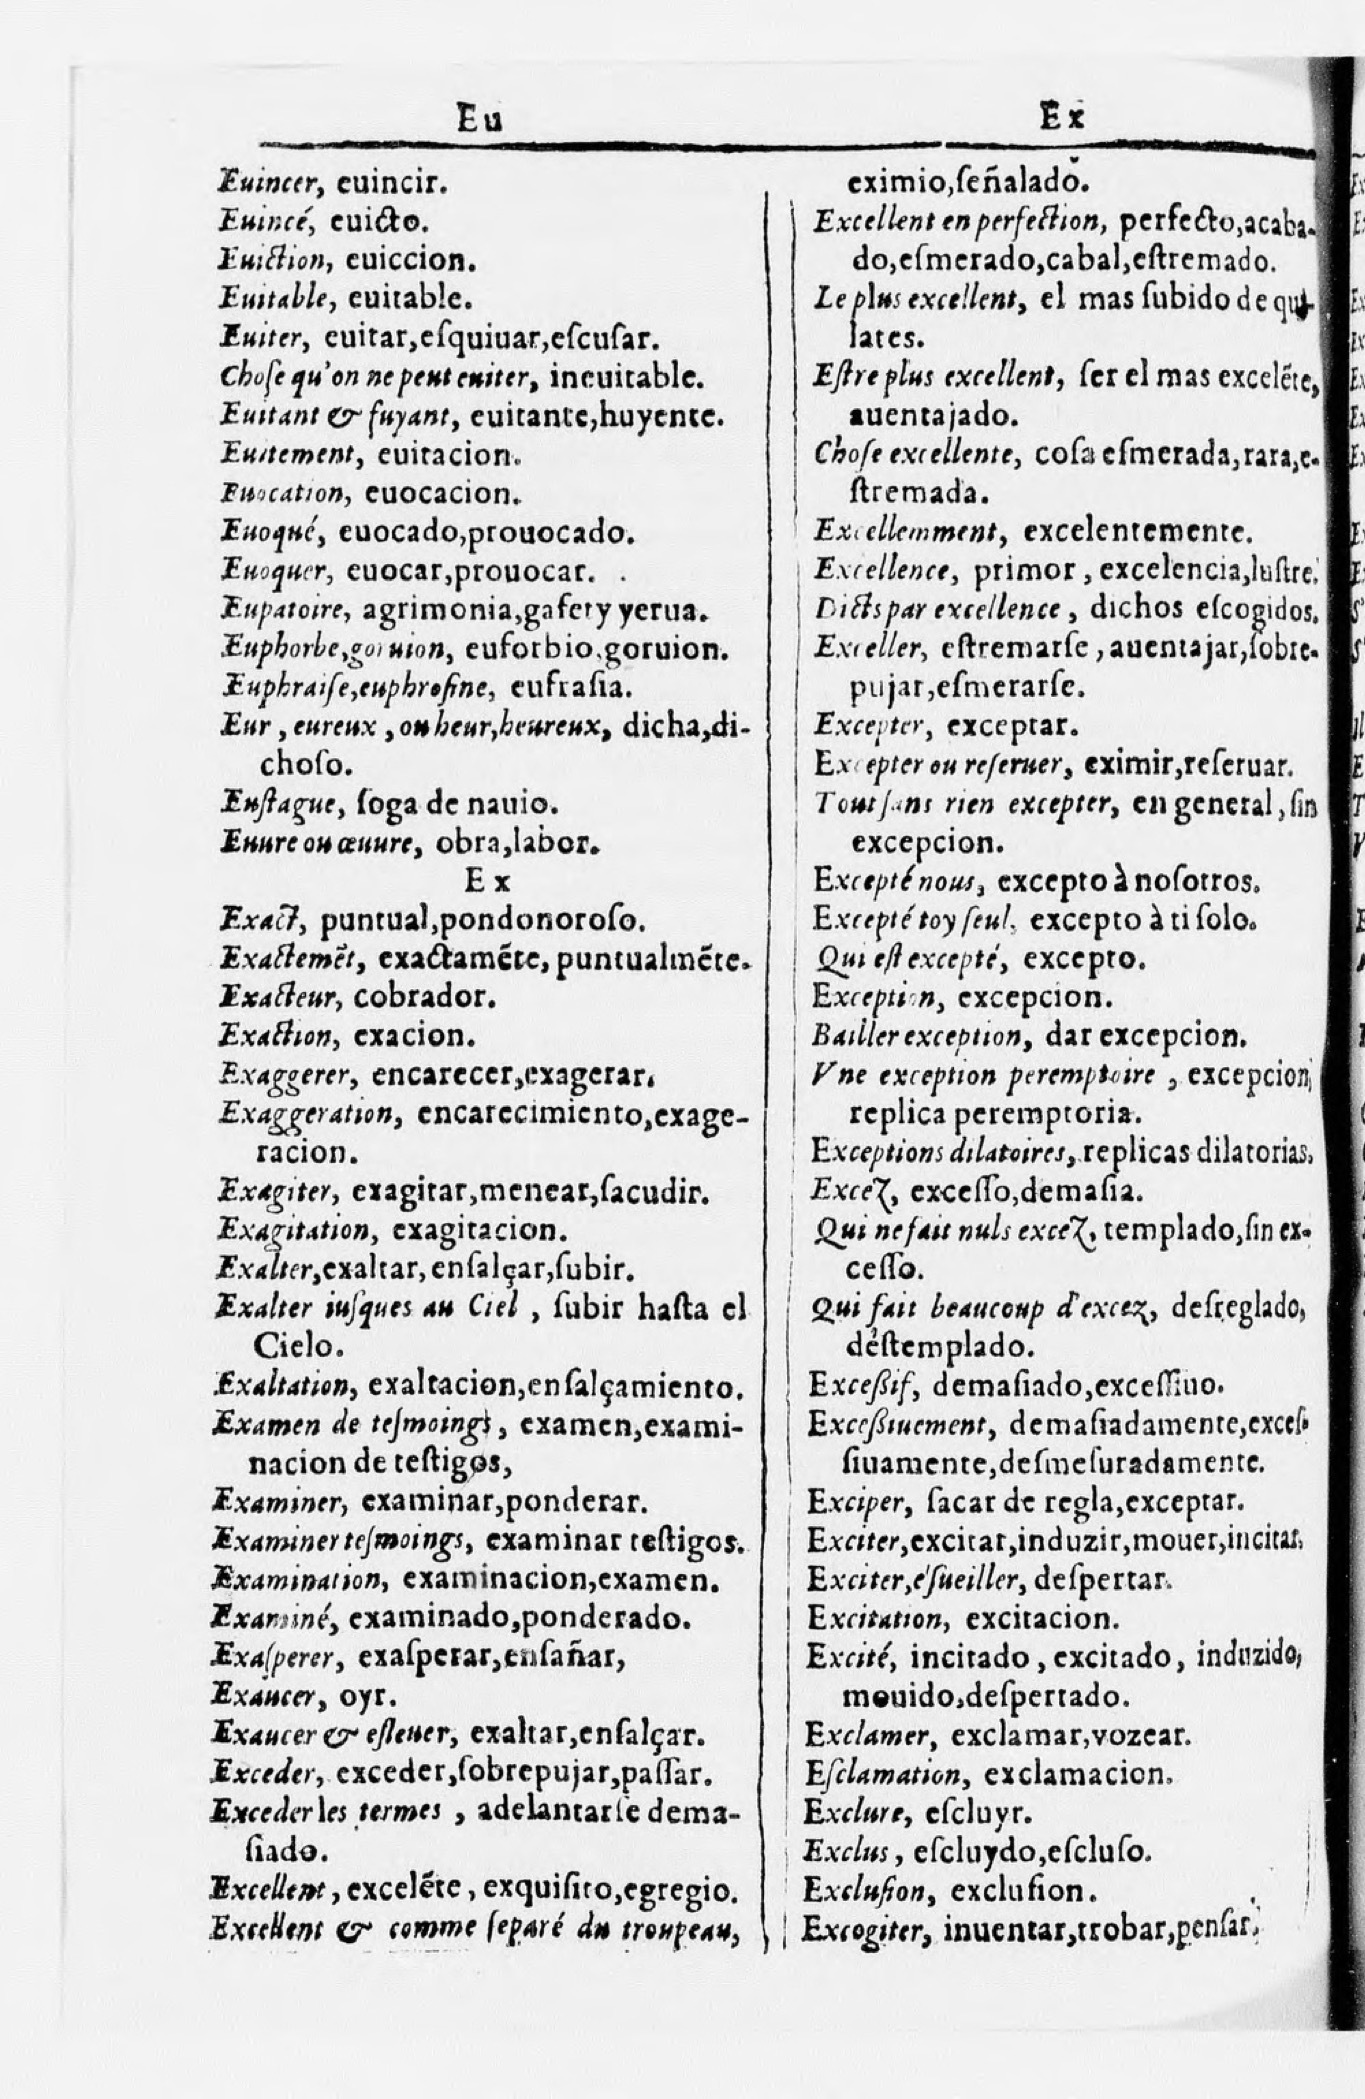 Eu
Euincer, euincir.
Euincé, euicto.
Euiction, euiccion.
Euitable, euitable.
Euiter, euitar,eſquiuar,eſcuſar.
Choſe qu'on ne peut euiter, ineuitable.
Euitant & fuyant, euitante,huyente.
Euitement, euitacion.
Euocation, euocacion.
Euoqué, euocado,prouocado.
Euoquer, euocar,prouocar.
Eupatoire, agrimonia,gafety yerua.
Euphorbe,goruion, euforbio,goruion.
Euphraiſe,euphroſine, eufraſia.
Eur , eureux , ou heur,heureux, dicha,di-
choſo.
Euſtague, ſoga de nauio.
Euure ou œuure, obra,labor.
Ex
Exact, puntual,pondonoroſo.
Exactemẽt, exactamẽte, puntualmẽte.
Exacteur, cobrador.
Exaction, exacion.
Exaggerer, encarecer,exagerar.
Exaggeration, encarecimiento,exage-
racion.
Exagiter, exagitar,menear,ſacudir.
Exagitation, exagitacion.
Exalter,exaltar, enſalçar,ſubir.
Exalter iuſques au Ciel , ſubir haſta el
Cielo.
Exaltation, exaltacion,enſalçamiento.
Examen de teſmoings , examen,exami-
nacion de teſtigos,
Examiner, examinar,ponderar.
Examiner teſmoings, examinar teſtigos.
Examination, examinacion,examen.
Examiné, examinado,ponderado.
Exaſperer, exaſperar,enſañar,
Exaucer, oyr.
Exaucer & eſleuer, exaltar,enſalçar.
Exceder, exceder,ſobrepujar,paſſar.
Exceder les termes , adelantarſe dema-
ſiado.
Excellent , excelẽte , exquiſito,egregio.
Excellent & comme ſeparé du troupeau,
Ex
eximio,ſeñalado.
Excellent en perfection, perfecto,acaba-
do,eſmerado,cabal,eſtremado.
Le plus excellent, el mas ſubido de qui-
lates.
Eſtre plus excellent, ſer el mas excelẽte,
auentajado.
Choſe excellente, coſa eſmerada,rara,e-
ſtremada.
Excellemment, excelentemente.
Excellence, primor , excelencia,luſtre.
Dicts par excellence , dichos eſcogidos.
Exceller, eſtremarſe , auentajar,ſobre-
pujar,eſmerarſe.
Excepter, exceptar.
Excepter ou reſeruer, eximir,reſeruar.
Tout ſans rien excepter, en general , ſin
excepcion.
Excepté nous, excepto à noſotros.
Excepté toy ſeul, excepto à ti ſolo.
Qui eſt excepté, excepto.
Exception, excepcion.
Bailler exception, dar excepcion.
Vne exception peremptoire , excepcion,
replica peremptoria.
Exceptions dilatoires, replicas dilatorias.
Excez, exceſſo,demaſia.
Qui ne fait nuls excez, templado,ſin ex-
ceſſo.
Qui fait beaucoup d'excez, deſreglado,
deſtemplado.
Exceßif, demaſiado,exceſſiuo.
Exceßiuement, demaſiadamente,exceſ-
ſiuamente,deſmeſuradamente.
Exciper, ſacar de regla,exceptar.
Exciter,excitar,induzir,mouer,incitar.
Exciter,eſueiller, deſpertar.
Excitation, excitacion.
Excité, incitado , excitado , induzido,
mouido,deſpertado.
Exclamer, exclamar,vozear.
Eſclamation, exclamacion.
Exclure, eſcluyr.
Exclus , eſcluydo,eſcluſo.
Excluſion, excluſion.
Excogiter, inuentar,trobar,penſar.